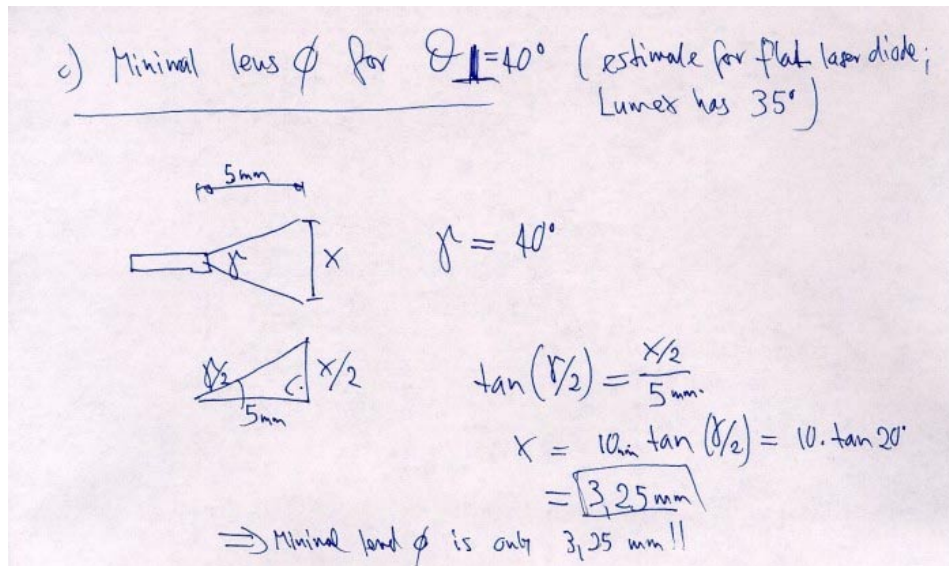 c) Minimal lens ϕ for Θ⊥=40° (estimate for flat laser diode;
Lumex has 35°)
5mm
γ
x
γ = 40°
γ/2
x/2
5mm
tan(γ/2) = x/2 / 5mm.
x = 10mm tan(γ/2) = 10.tan 20°
= 3,25 mm
⇒ Minimal lend ϕ is only 3,25 mm!!